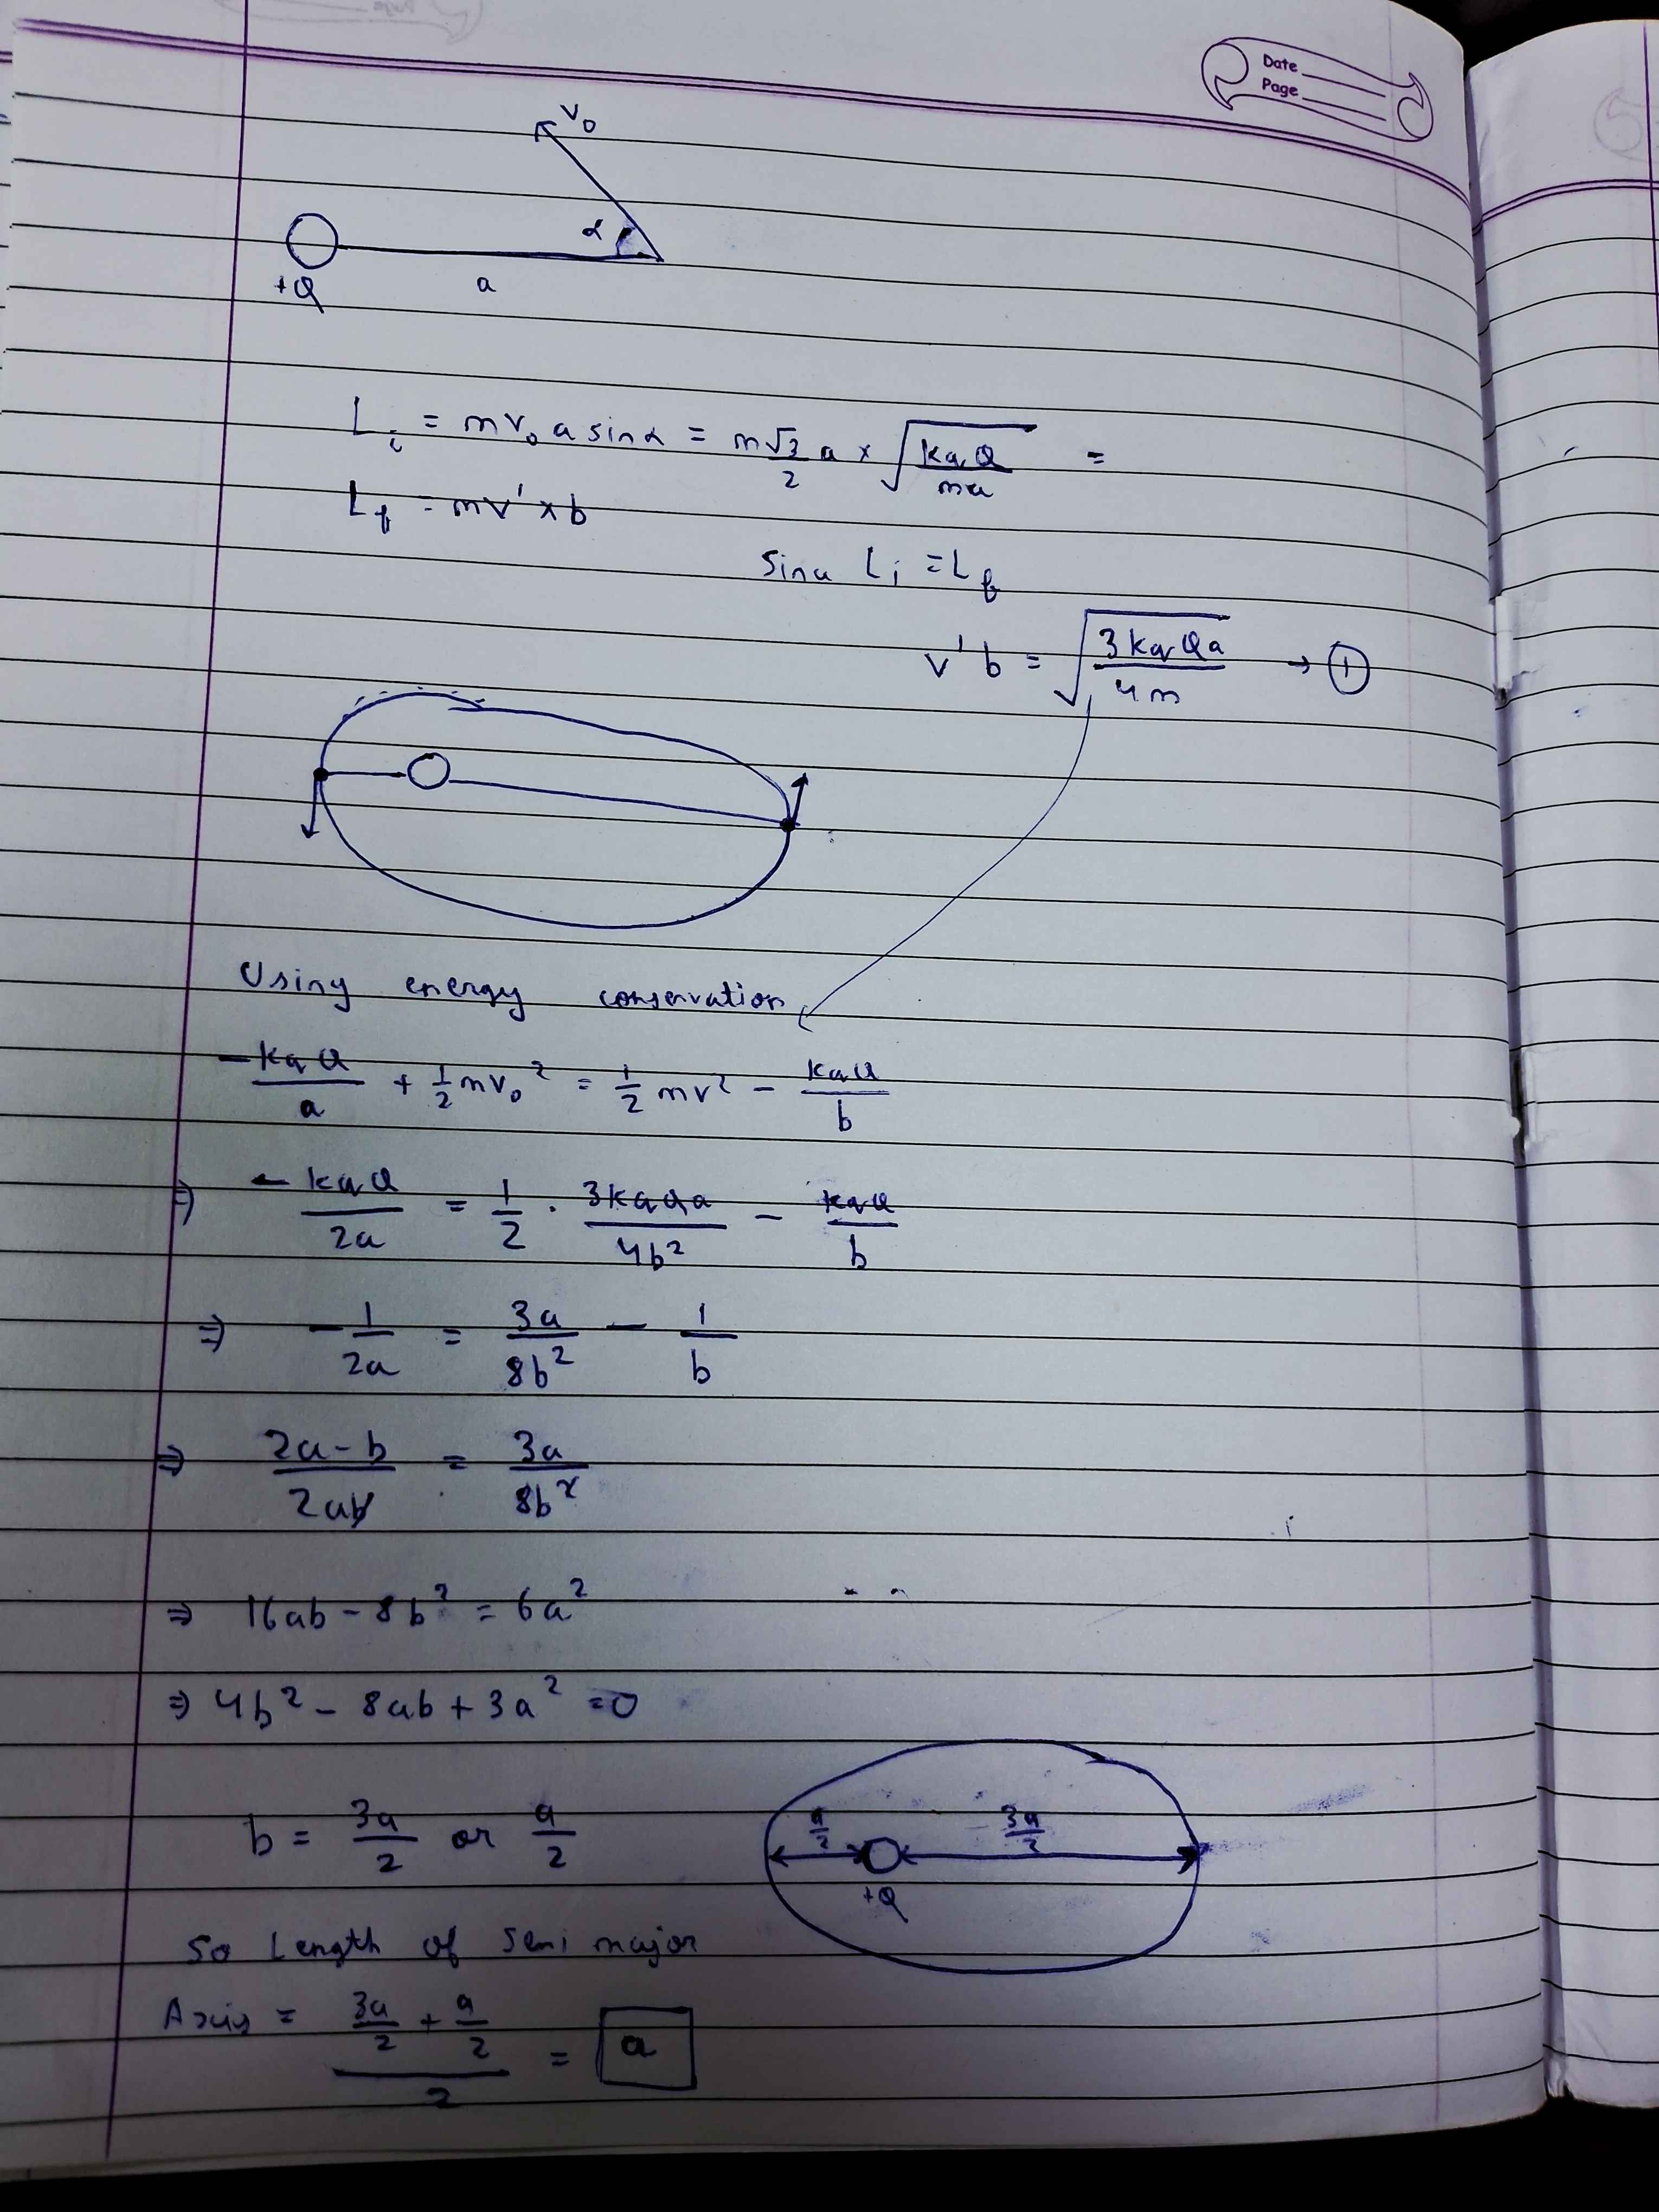 Date
Page
V₀
α
+Q
a
Lᵢ = mv₀ a sinα = m√3/2 a × √(kqQ/ma) =
L_f = mv' × b
Sinu Lᵢ = L_f
v' b = √(3kqQa/4m) → ①
Using energy conservation
-kqQ/a + 1/2 mv₀² = 1/2 mv² - kqQ/b
⇒ -kqQ/2a = 1/2 · 3kqQa/4b² - kqQ/b
⇒ -1/2a = 3a/8b² - 1/b
⇒ (2a-b)/2ab = 3a/8b²
⇒ 16ab - 8b² = 6a²
⇒ 4b² - 8ab + 3a² = 0
b = 3a/2 or a/2
a/2 3a/2
+Q
So Length of Semi major
Axis = (3a/2 + a/2)/2 = a